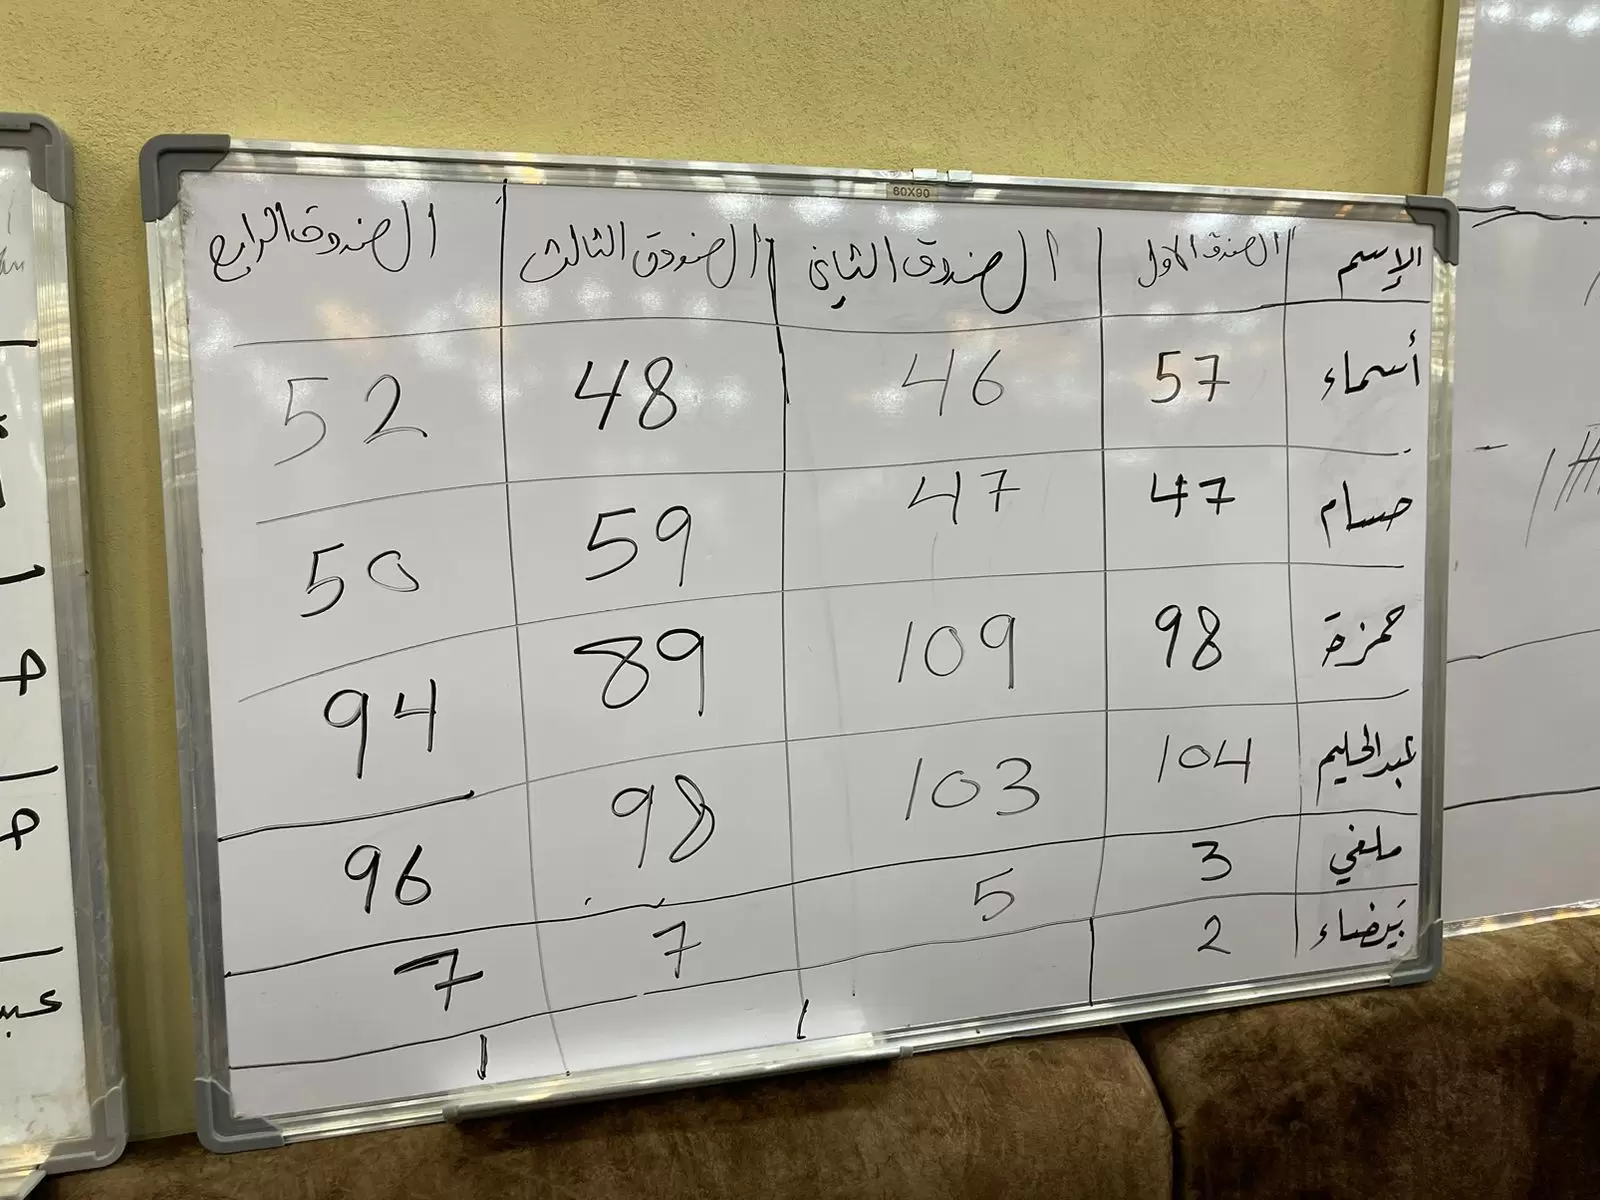 60X90
الإسم الصندق الاول الصندوق الثاني الصندوق الثالث الصندوق الرابع
أسماء 57 46 48 52
حسام 47 47 59 50
حمزة 98 109 89 94
عبدالحليم 104 103 98 96
ملغي 3 5 7 7
بيضاء 2